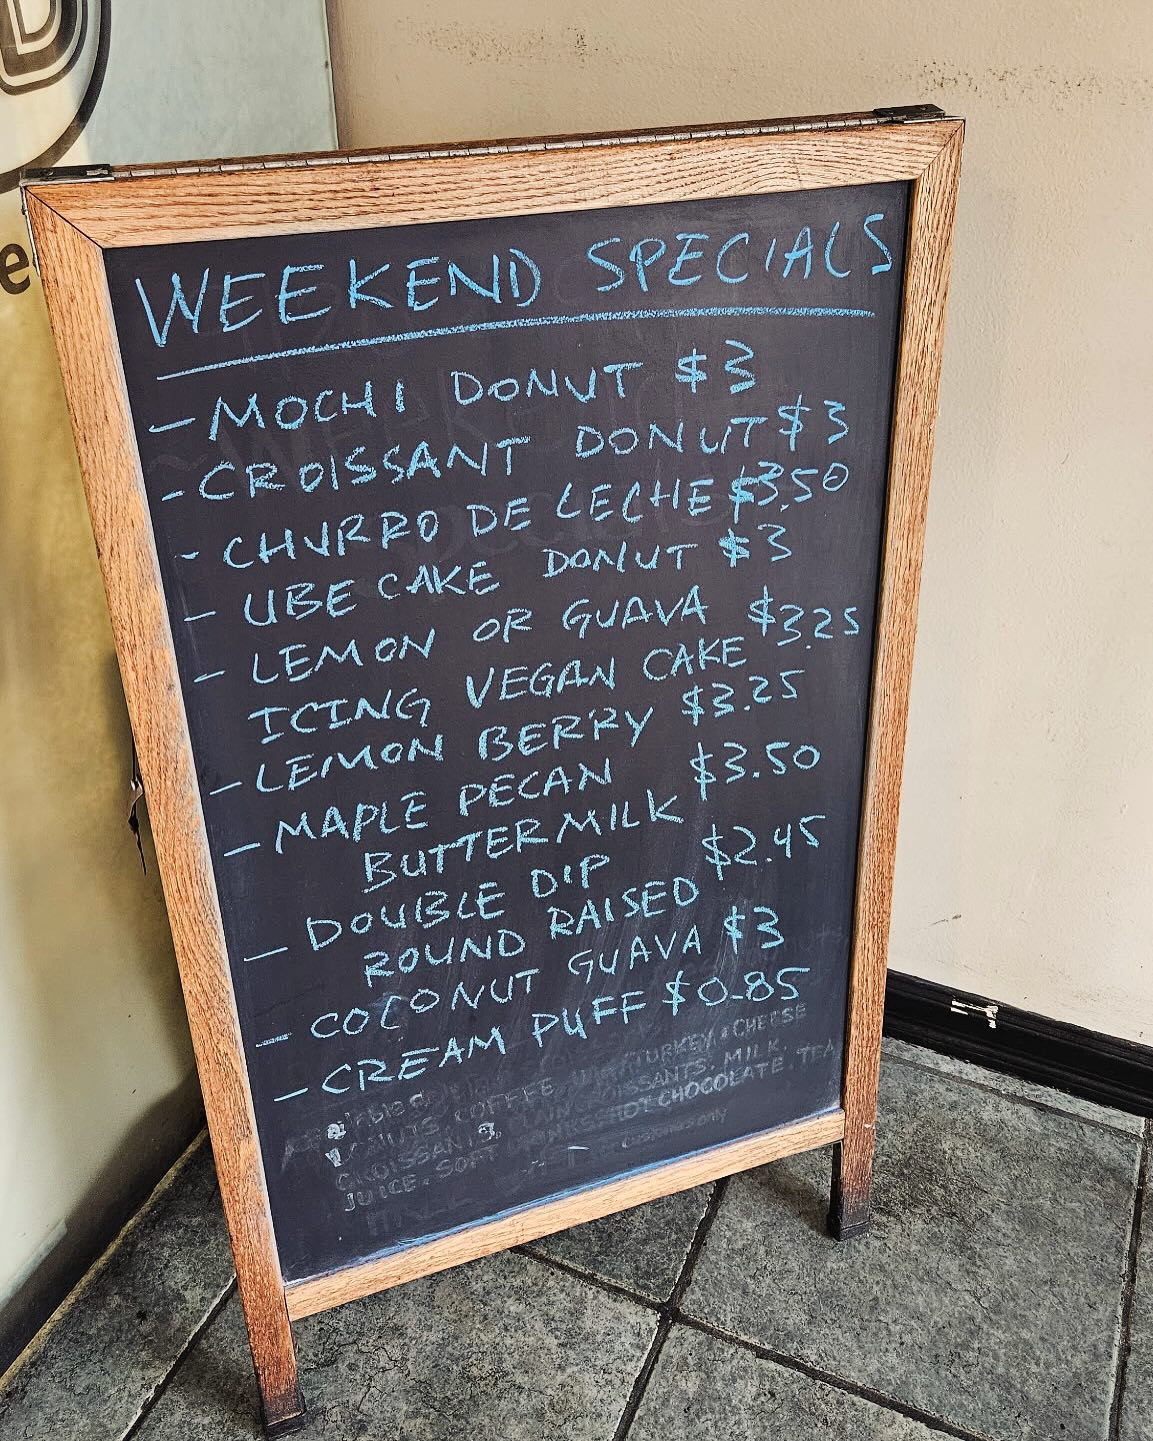 WEEKEND SPECIALS
- MOCHI DONUT $3
- CROISSANT DONUT $3
- CHURRO DE LECHE $3.50
- UBE CAKE DONUT $3
- LEMON OR GUAVA $3.25
ICING VEGAN CAKE
- LEMON BERRY $3.25
- MAPLE PECAN $3.50
BUTTERMILK
- DOUBLE DIP $2.45
ROUND RAISED
- COCONUT GUAVA $3
- CREAM PUFF $0.85
TURKEY & CHEESE
COFFEE
CROISSANTS, MILK,
JUICE, SOFT HOT CHOCOLATE, TEA